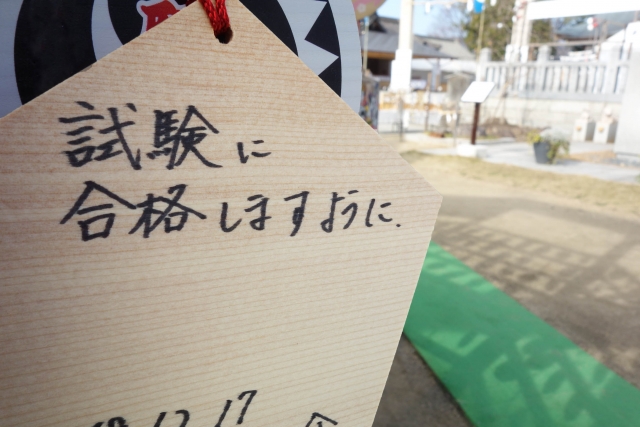 試験に
合格しますように.
12.17